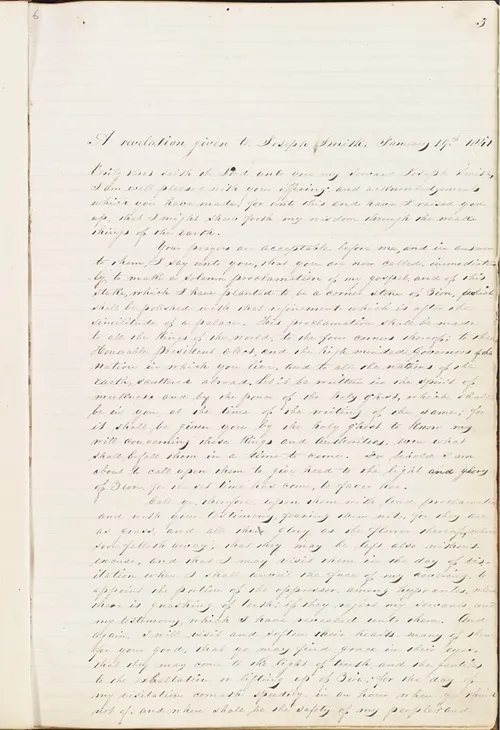 6
3
A revelation given to Joseph Smith, January 19th 1841
Verily thus saith the Lord unto you my servant Joseph Smith,
I am well pleased with your offering and acknowledgments
which you have made; for unto this end have I raised you
up, that I might shew forth my wisdom through the weak
things of the earth.
Your prayers are acceptable before me, and in answer
to them, I say unto you, that you are now called, immediate
ly, to make a solemn proclamation of my gospel, and of this
stake, which I have planted to be a corner stone of Zion, which
shall be polished with that refinement which is after the
similitude of a palace. This proclamation shall be made
to all the Kings of the world, to the four corners thereof; to the
Honorable President elect, and the high minded Governors of the
nation in which you live, and to all the nations of the
earth, scattered abroad. Let it be written in the spirit of
meekness and by the power of the holy ghost, which shall
be in you at the time of the writing of the same; for
it shall be given you by the holy ghost to know my
will concerning those Kings and authorities, even what
shall befall them in a time to come. For behold I am
about to call upon them to give heed to the light and glory
of Zion, for the set time has come, to favor her.
Call ye, therefore, upon them with loud proclamation
and with your testimony, fearing them not, for they are
as grass, and all their glory as the flower thereof, which
soon falleth away; that they may be left also without
excuse, and that I may visit them in the day of vis-
itation when I shall unveil the face of my covering, to
appoint the portion of the oppressor among hypocrites, where
there is gnashing of teeth; if they reject my servants and
my testimony, which I have revealed unto them. And
again, I will visit and soften their hearts, many of them
for your good, that ye may find grace in their eyes,
that they may come to the light of truth, and the gentiles
to the exaltation or lifting up of Zion: for the day of
my visitation cometh speedily, in an hour when ye think
not of, and where shall be the safety of my people? and